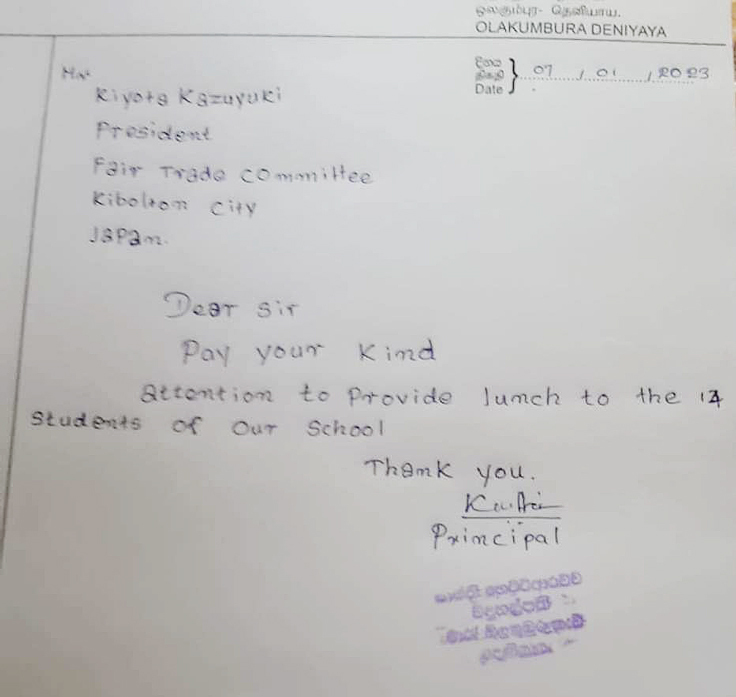 OLAKUMBURA DENIYAYA
දිනය
திகதி
Date } 07 / 01 / 2023
Mr
Kiyota Kazuyuki
President
Fair Trade committee
Kibolton City
Japan.
Dear Sir
Pay your Kind
attention to Provide lunch to the 14
Students of Our School
Thank you.
Principal